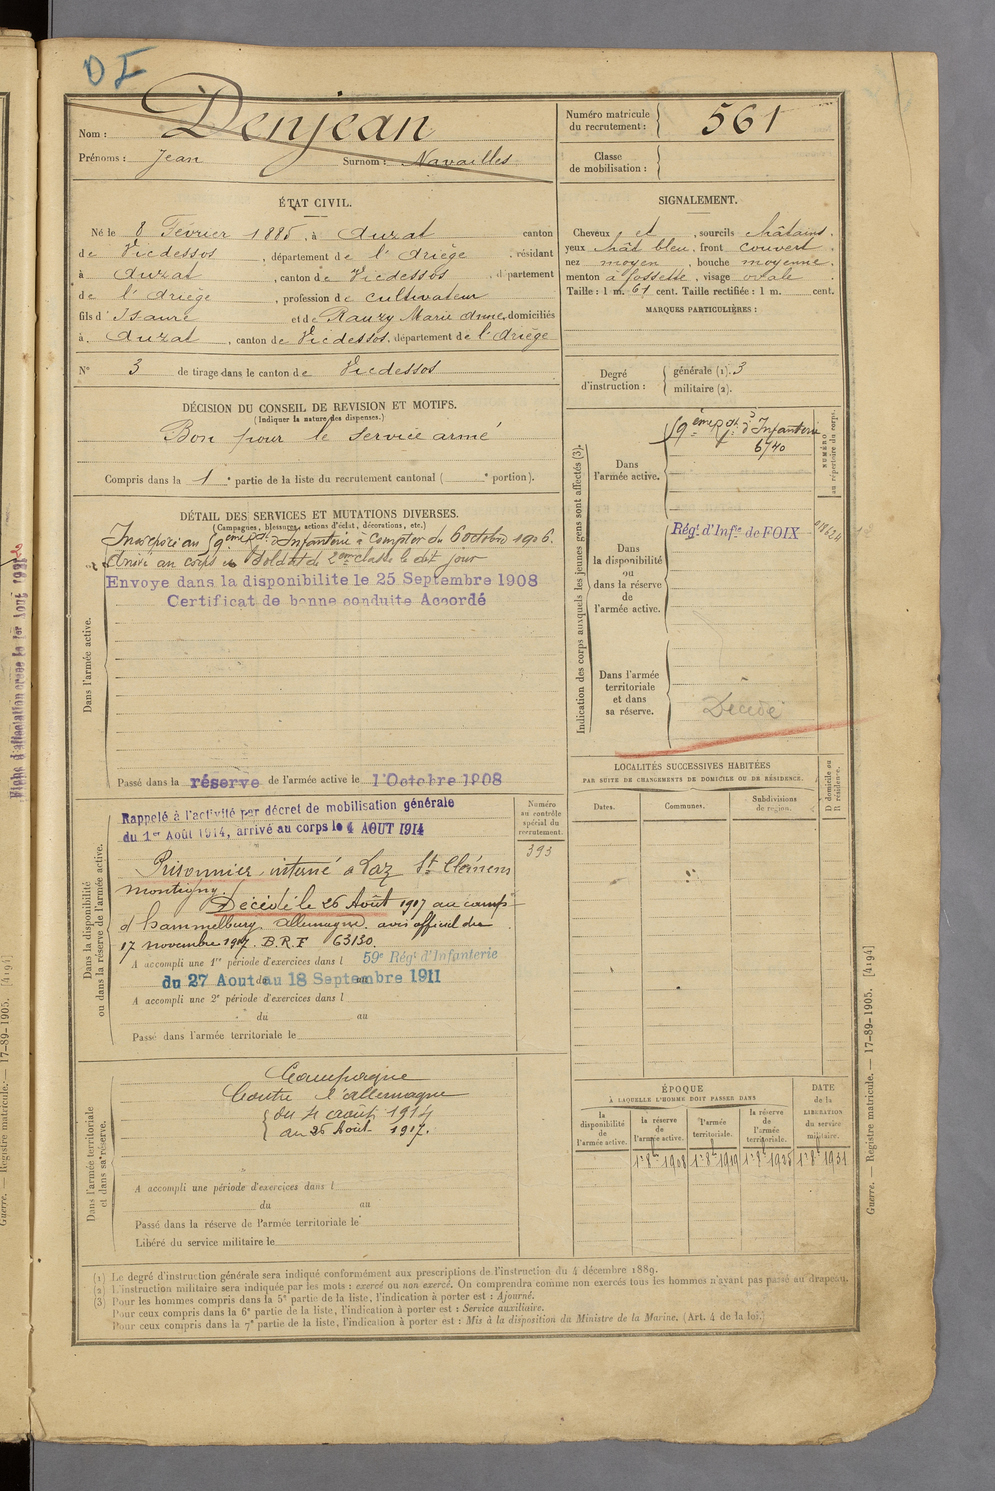 DI
Nom : Denjean
Prénoms : Jean Surnom : Navailles
Numéro matricule du recrutement : 561
Classe de mobilisation :
ÉTAT CIVIL.
Né le 8 Février 1885, à Auzat canton
de Vicdessos, département de l'Ariège, résidant
à Auzat, canton de Vicdessos, département
de l'Ariège, profession de cultivateur
fils d'Isaure et de Rauzy Marie Anne, domiciliés
à Auzat, canton de Vicdessos, département de l'Ariège
N° 3 de tirage dans le canton de Vicdessos
SIGNALEMENT.
Cheveux et, sourcils châtains.
yeux chât bleu, front couvert.
nez moyen, bouche moyenne.
menton à fossette, visage ovale.
Taille : 1 m. 61 cent. Taille rectifiée : 1 m. cent.
MARQUES PARTICULIÈRES :
Degré d'instruction : générale (1). 3
militaire (2).
DÉCISION DU CONSEIL DE REVISION ET MOTIFS.
(Indiquer la nature des dispenses.)
Bon pour le service armé
Compris dans la 1e partie de la liste du recrutement cantonal ( e portion).
DÉTAIL DES SERVICES ET MUTATIONS DIVERSES.
(Campagnes, blessures, actions d'éclat, décorations, etc.)
Incorporé au 59ème Rgt d'Infanterie à compter du 6 octobre 1906.
Arrivé au corps et Soldat de 2ème classe le dit jour
Envoye dans la disponibilite le 25 Septembre 1908
Certificat de bonne conduite Accordé
Dans l'armée active.
Passé dans la réserve de l'armée active le 1'Octobre 1908
Indication des corps auxquels les jeunes gens sont affectés (3).
NUMÉRO au répertoire du corps.
Dans l'armée active.
59ème Rgt d'Infanterie
6740
Dans la disponibilité ou dans la réserve de l'armée active.
Régt d'Infie de FOIX
Dans l'armée territoriale et dans sa réserve.
Décédé
Dans la disponibilité ou dans la réserve de l'armée active.
Rappelé à l'activité par décret de mobilisation générale
du 1er Août 1914, arrivé au corps le 4 AOUT 1914
Prisonnier, interné à Laz St Clémens
montigny.
Décédé le 26 Août 1917 au camp
d'hammelburg allemagne. avis officiel du
17 novembre 1917. B.R.F 63130.
A accompli une 1re période d'exercices dans l 59e Régt d'Infanterie
du 27 Aout au 18 Septembre 1911
A accompli une 2e période d'exercices dans l
du au
Passé dans l'armée territoriale le
Numéro au contrôle spécial du recrutement.
393
LOCALITÉS SUCCESSIVES HABITÉES
PAR SUITE DE CHANGEMENTS DE DOMICILE OU DE RÉSIDENCE.
Dates. Communes. Subdivisions de région. D domicile ou R résidence.
Dans l'armée territoriale et dans sa réserve.
Campagne
Contre l'allemagne
du 4 août 1914
au 26 Août 1917.
A accompli une période d'exercices dans l
du au
Passé dans la réserve de l'armée territoriale le
Libéré du service militaire le
ÉPOQUE
À LAQUELLE L'HOMME DOIT PASSER DANS
la disponibilité de l'armée active. la réserve de l'armée active. l'armée territoriale. la réserve de l'armée territoriale.
DATE de la LIBÉRATION du service militaire.
1er 8bre 1908 1er 8bre 1919 1er 8bre 1925 1er 8bre 1931
(1) Le degré d'instruction générale sera indiqué conformément aux prescriptions de l'instruction du 4 décembre 1889.
(2) L'instruction militaire sera indiquée par les mots : exercé ou non exercé. On comprendra comme non exercés tous les hommes n'ayant pas passé au drapeau.
(3) Pour les hommes compris dans la 5e partie de la liste, l'indication à porter est : Ajourné.
Pour ceux compris dans la 6e partie de la liste, l'indication à porter est : Service auxiliaire.
Pour ceux compris dans la 7e partie de la liste, l'indication à porter est : Mis à la disposition du Ministre de la Marine. (Art. 4 de la loi.)
Guerre. — Registre matricule. — 17-89-1905. [4194]
Guerre. — Registre matricule. — 17-89-1905. [4194]